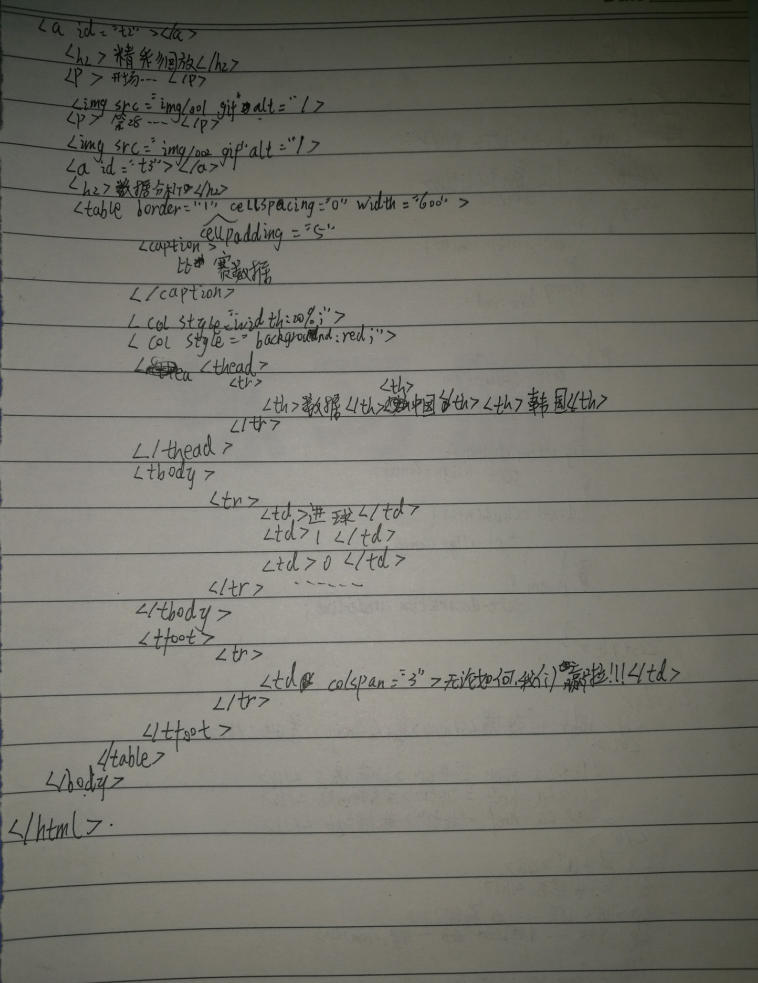 <a id="t2"></a>
<h2>精彩回放</h2>
<p>开场…</p>
<img src="img/001 gif" alt="/>
<p>第28……</p>
<img src="img/002 gif" alt="/>
<a id="t3"></a>
<h2>数据分析</h2>
<table border="1" cellspacing="0" width="600">
cellpadding="5"
<caption>
比赛数据
</caption>
<col style="width:20%;">
<col style="background:red;">
<thead>
<tr>
<th>数据</th><th>中国</th><th>韩国</th>
</tr>
</thead>
<tbody>
<tr>
<td>进球</td>
<td>1</td>
<td>0</td>
</tr> ……
</tbody>
<tfoot>
<tr>
<td colspan="3">无论如何,我们赢啦!!!</td>
</tr>
</tfoot>
</table>
</body>
</html>.